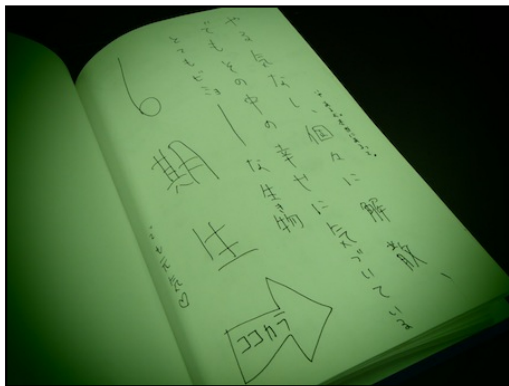 やる気なし、個々に解散、
でもその中の幸せに気づいている
とてもビミョーな生き物
6期生
ココカラ